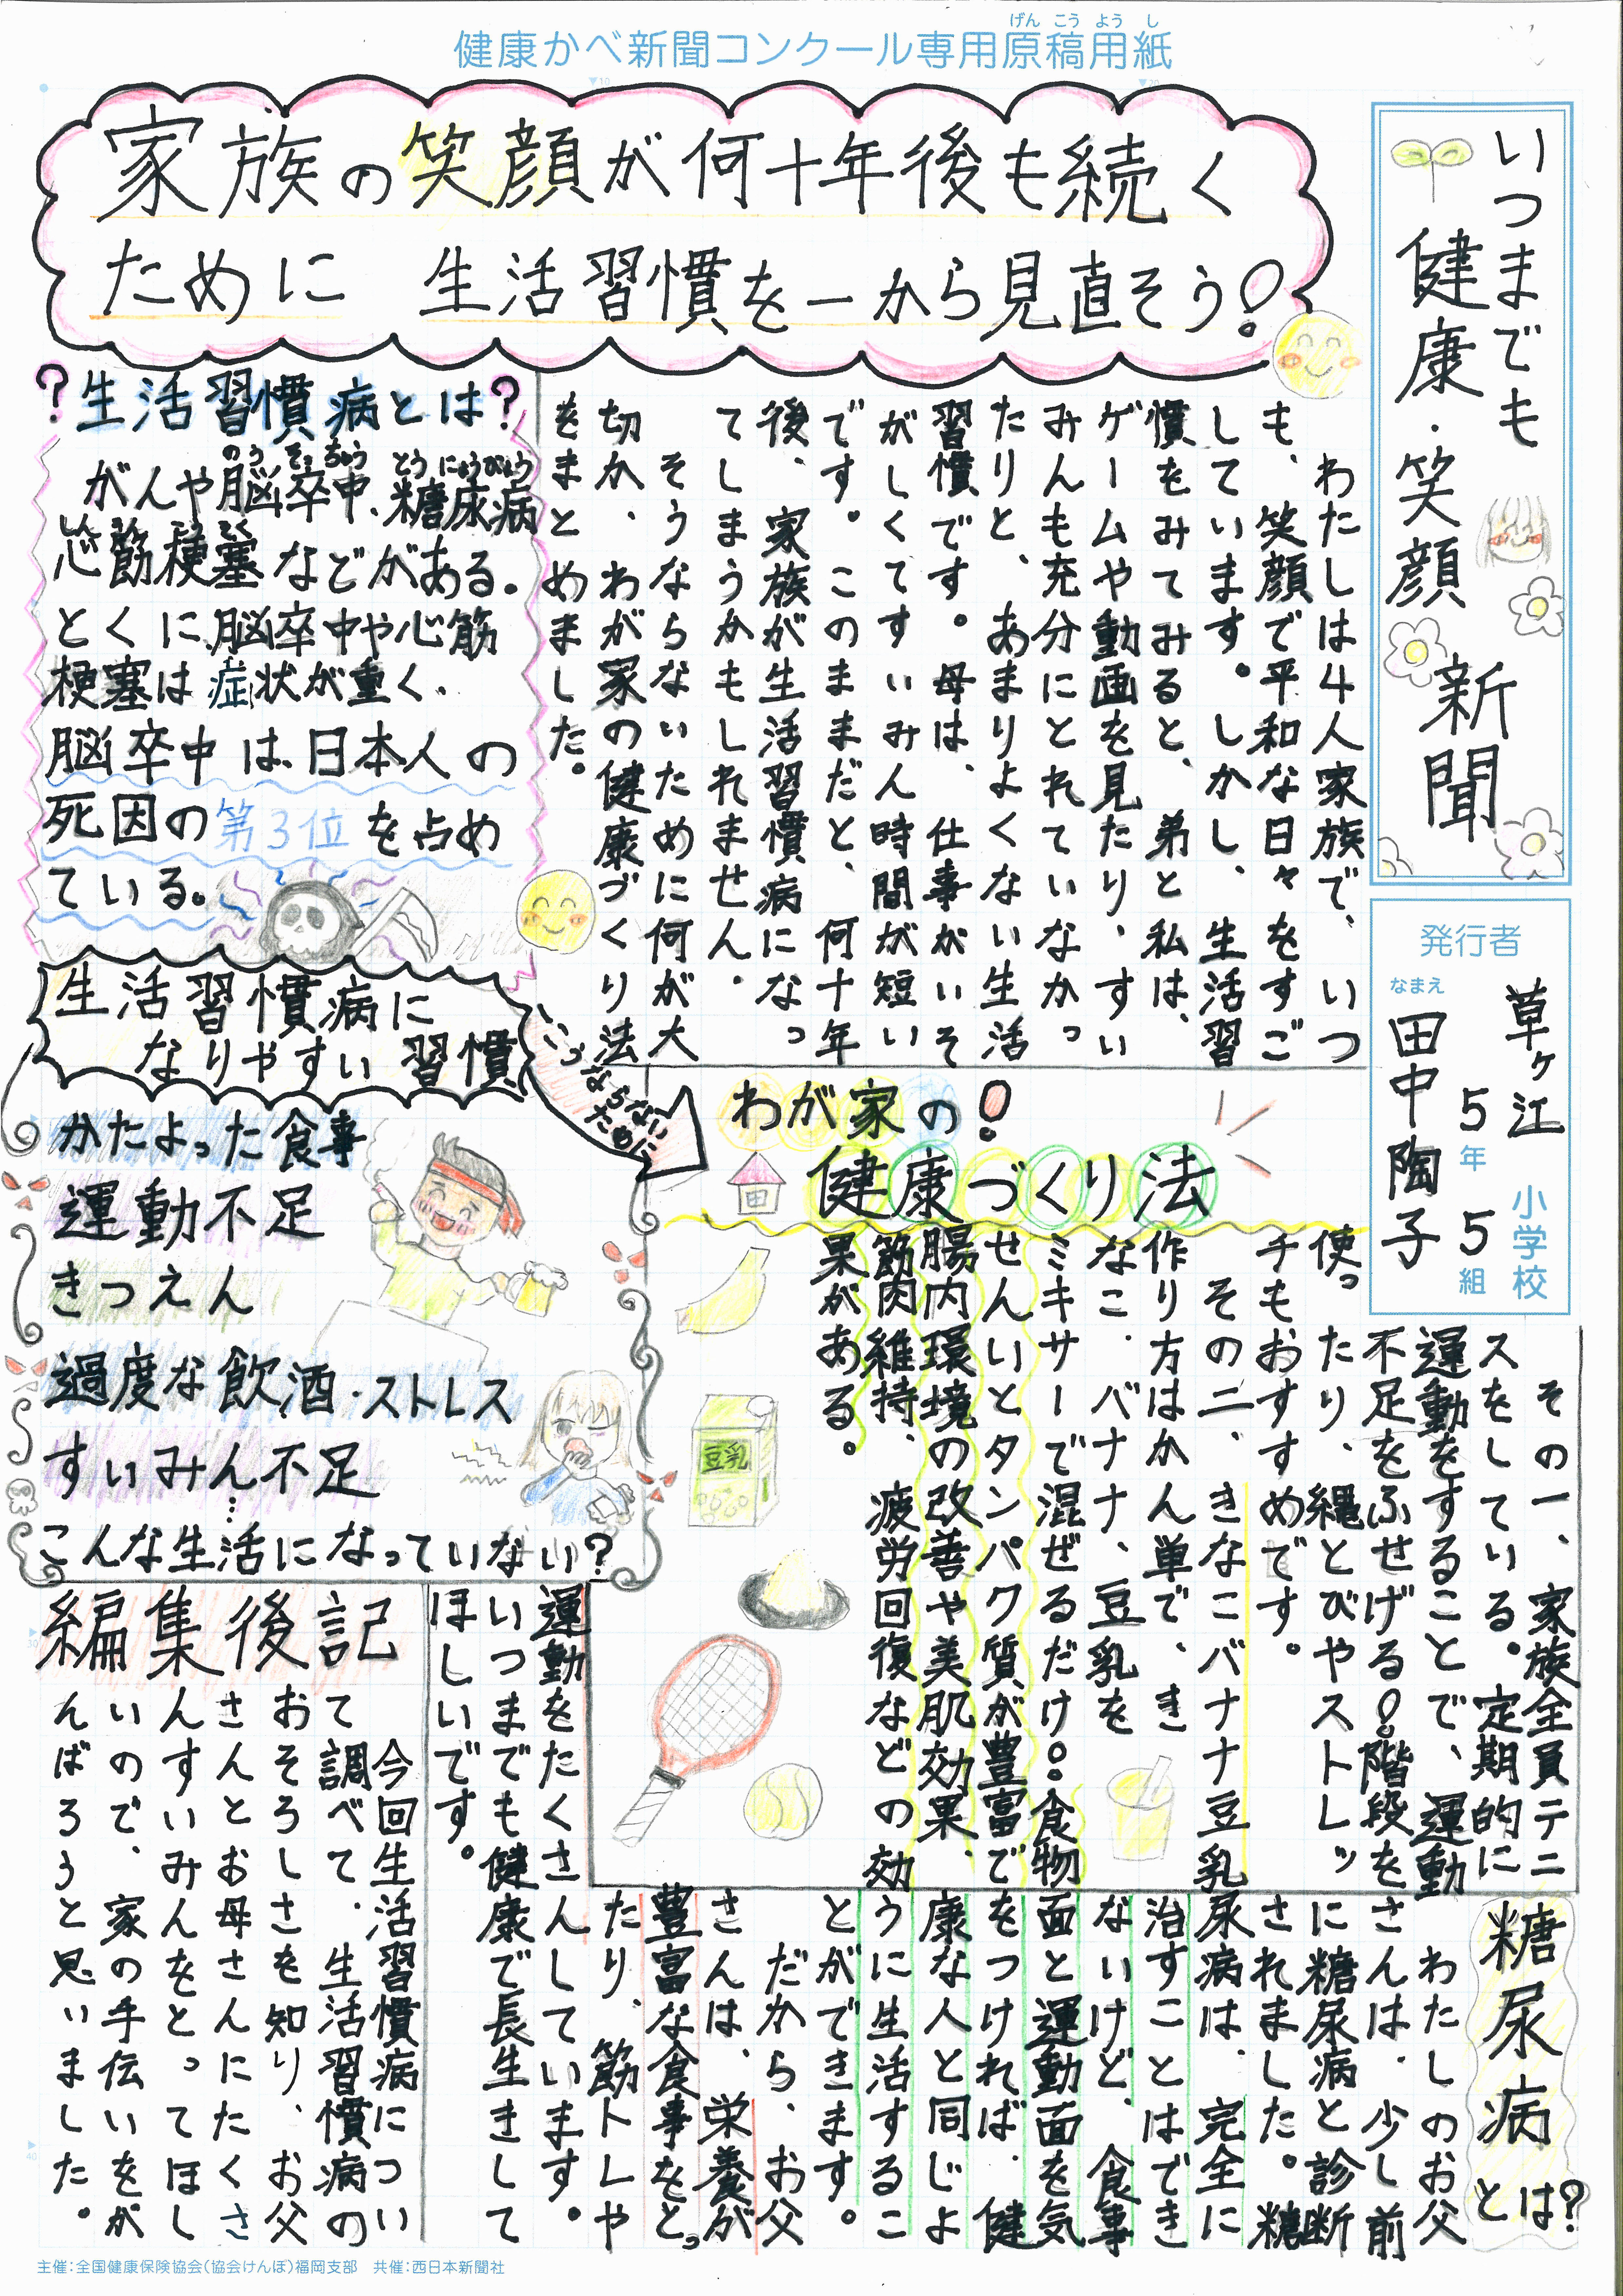 健康かべ新聞コンクール専用原稿用紙
げんこうようし
いつまでも
健康・笑顔新聞
発行者
草ヶ江小学校
5年5組
なまえ
田中陶子
家族の笑顔が何十年後も続く
ために 生活習慣を一から見直そう!
わたしは4人家族で、いつ
も、笑顔で平和な日々をすご
しています。しかし、生活習
慣をみてみると、弟と私は、
ゲームや動画を見たり、すい
みんも充分にとれていなかっ
たりと、あまりよくない生活
習慣です。母は、仕事がいそ
がしくてすいみん時間が短い
です。このままだと、何十年
後、家族が生活習慣病になっ
てしまうかもしれません。
そうならないために何が大
切か、わが家の健康づくり法
をまとめました。
?生活習慣病とは?
がんや脳卒中、糖尿病
のうそっちゅう とうにょうびょう
心筋梗塞などがある。
しんきんこうそく
とくに、脳卒中や心筋
梗塞は症状が重く、
脳卒中は、日本人の
死因の第3位を占め
ている。
生活習慣病に
なりやすい習慣
かたよった食事
運動不足
きつえん
過度な飲酒・ストレス
すいみん不足
…
こんな生活になっていない?
そうならないために
わが家の!
健康づくり法
その一、家族全員テニ
スをしている。定期的に
運動をすることで、運動
不足をふせげる!。階段を
使ったり、縄とびやストレッ
チもおすすめです。
その二、きなこバナナ豆乳
作り方はかん単で、き
なこ・バナナ、豆乳を
ミキサーで混ぜるだけ!。食物
せんいとタンパク質が豊富で
腸内環境の改善や美肌効果、
筋肉維持、疲労回復などの効
果がある。
豆乳
糖尿病とは?
わたしのお父
さんは、少し前
に糖尿病と診断
されました。糖
尿病は、完全に
治すことはでき
ないけど、食事
面と運動面を気
をつければ、健
康な人と同じよ
うに生活するこ
とができます。
だから、お父
さんは、栄養が
豊富な食事をとっ
たり、筋トレや
運動をたくさんしています。
いつまでも健康で長生きして
ほしいです。
編集後記
今回生活習慣病につい
て調べて、生活習慣病の
おそろしさを知り、お父
さんとお母さんにたくさ
んすいみんをとってほし
いので、家の手伝いをが
んばろうと思いました。
主催:全国健康保険協会(協会けんぽ)福岡支部 共催:西日本新聞社